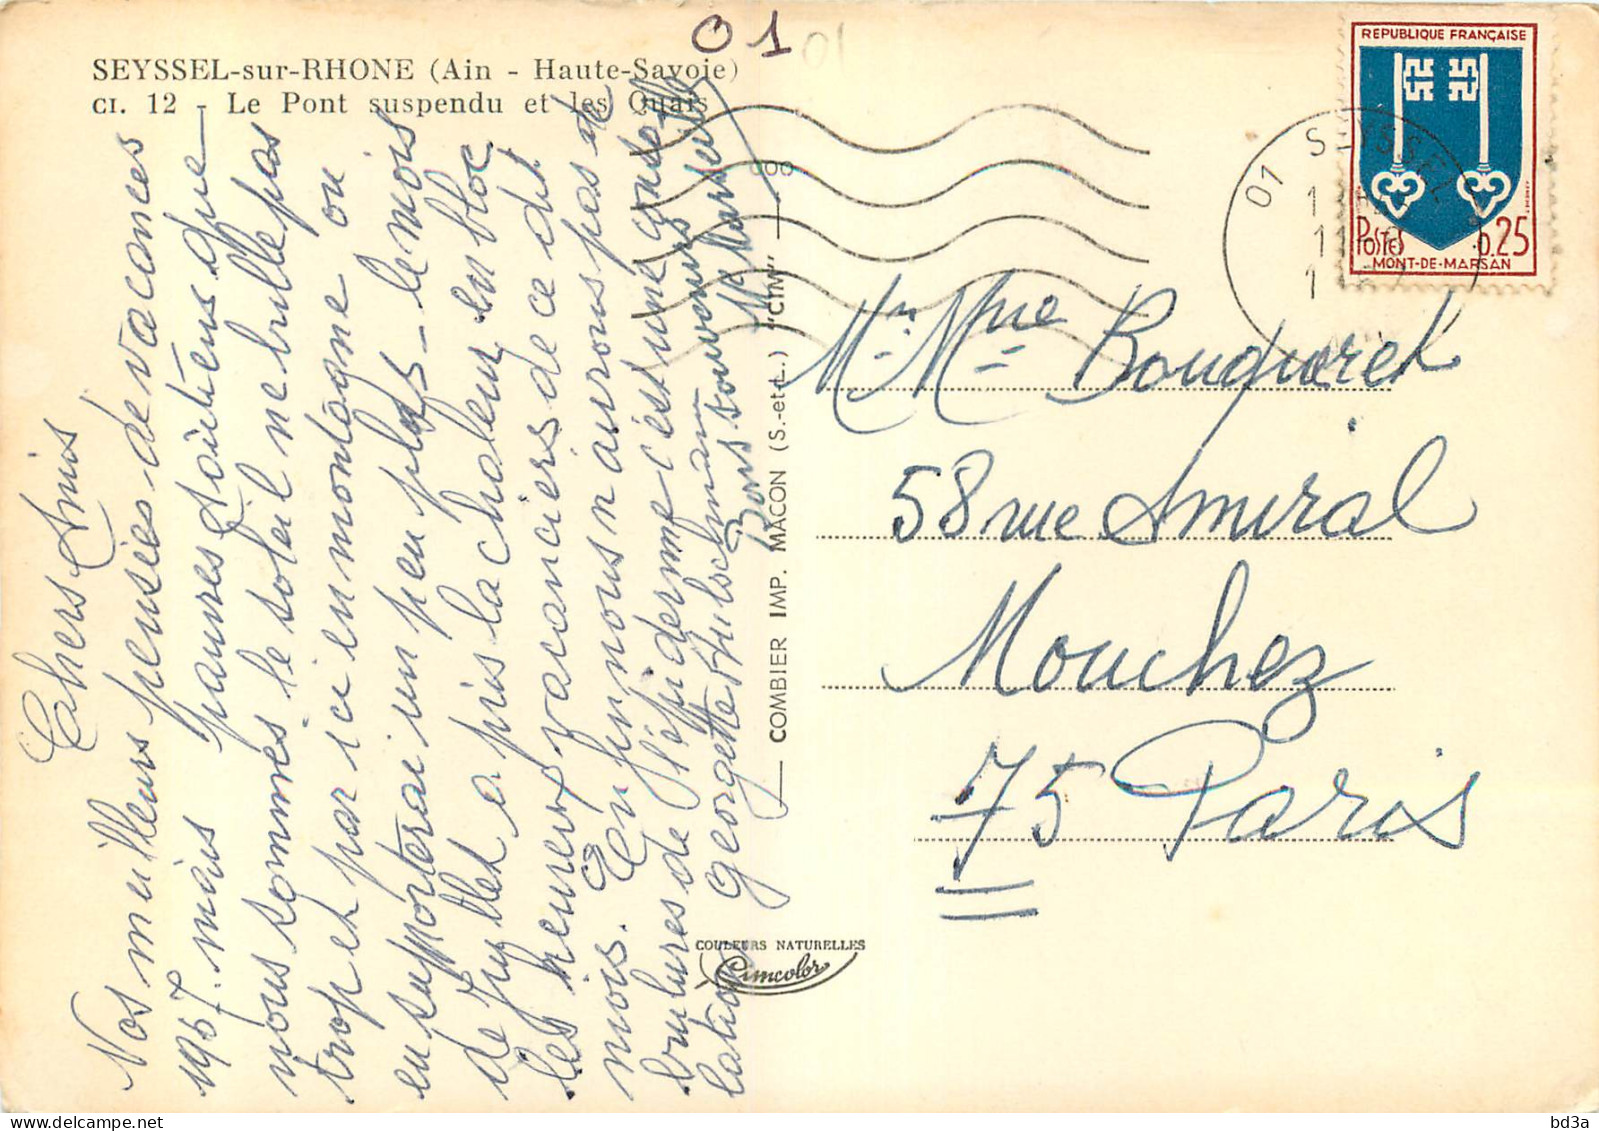 01
01
SEYSSEL-sur-RHONE (Ain - Haute-Savoie)
CI. 12 - Le Pont suspendu et les Quais
Chers Amis
Nos meilleurs pensées de vacances
1967. mais pauvres soitiens que
nous sommes le soleil ne brille pas
trop et par ici en montagne on
en supporterai un peu plus - le mois
de Juillet a pris la chaleur en bloc
les heureux vacanciers de ce dit
mois. Enfin nous n'aurons pas de
brulures de l'épiderme c'est une conso
lation
Georgette
Bons souvenirs
Marseille
COMBIER IMP. MACON (S.-et-L.) "CIM"
COULEURS NATURELLES
Cimcolor
REPUBLIQUE FRANÇAISE
POSTES 0.25
MONT-DE-MARSAN
01 SEYSSEL
Mr Mme Bouquerel
58 rue Amiral
Mouchez
75 Paris
bd3a